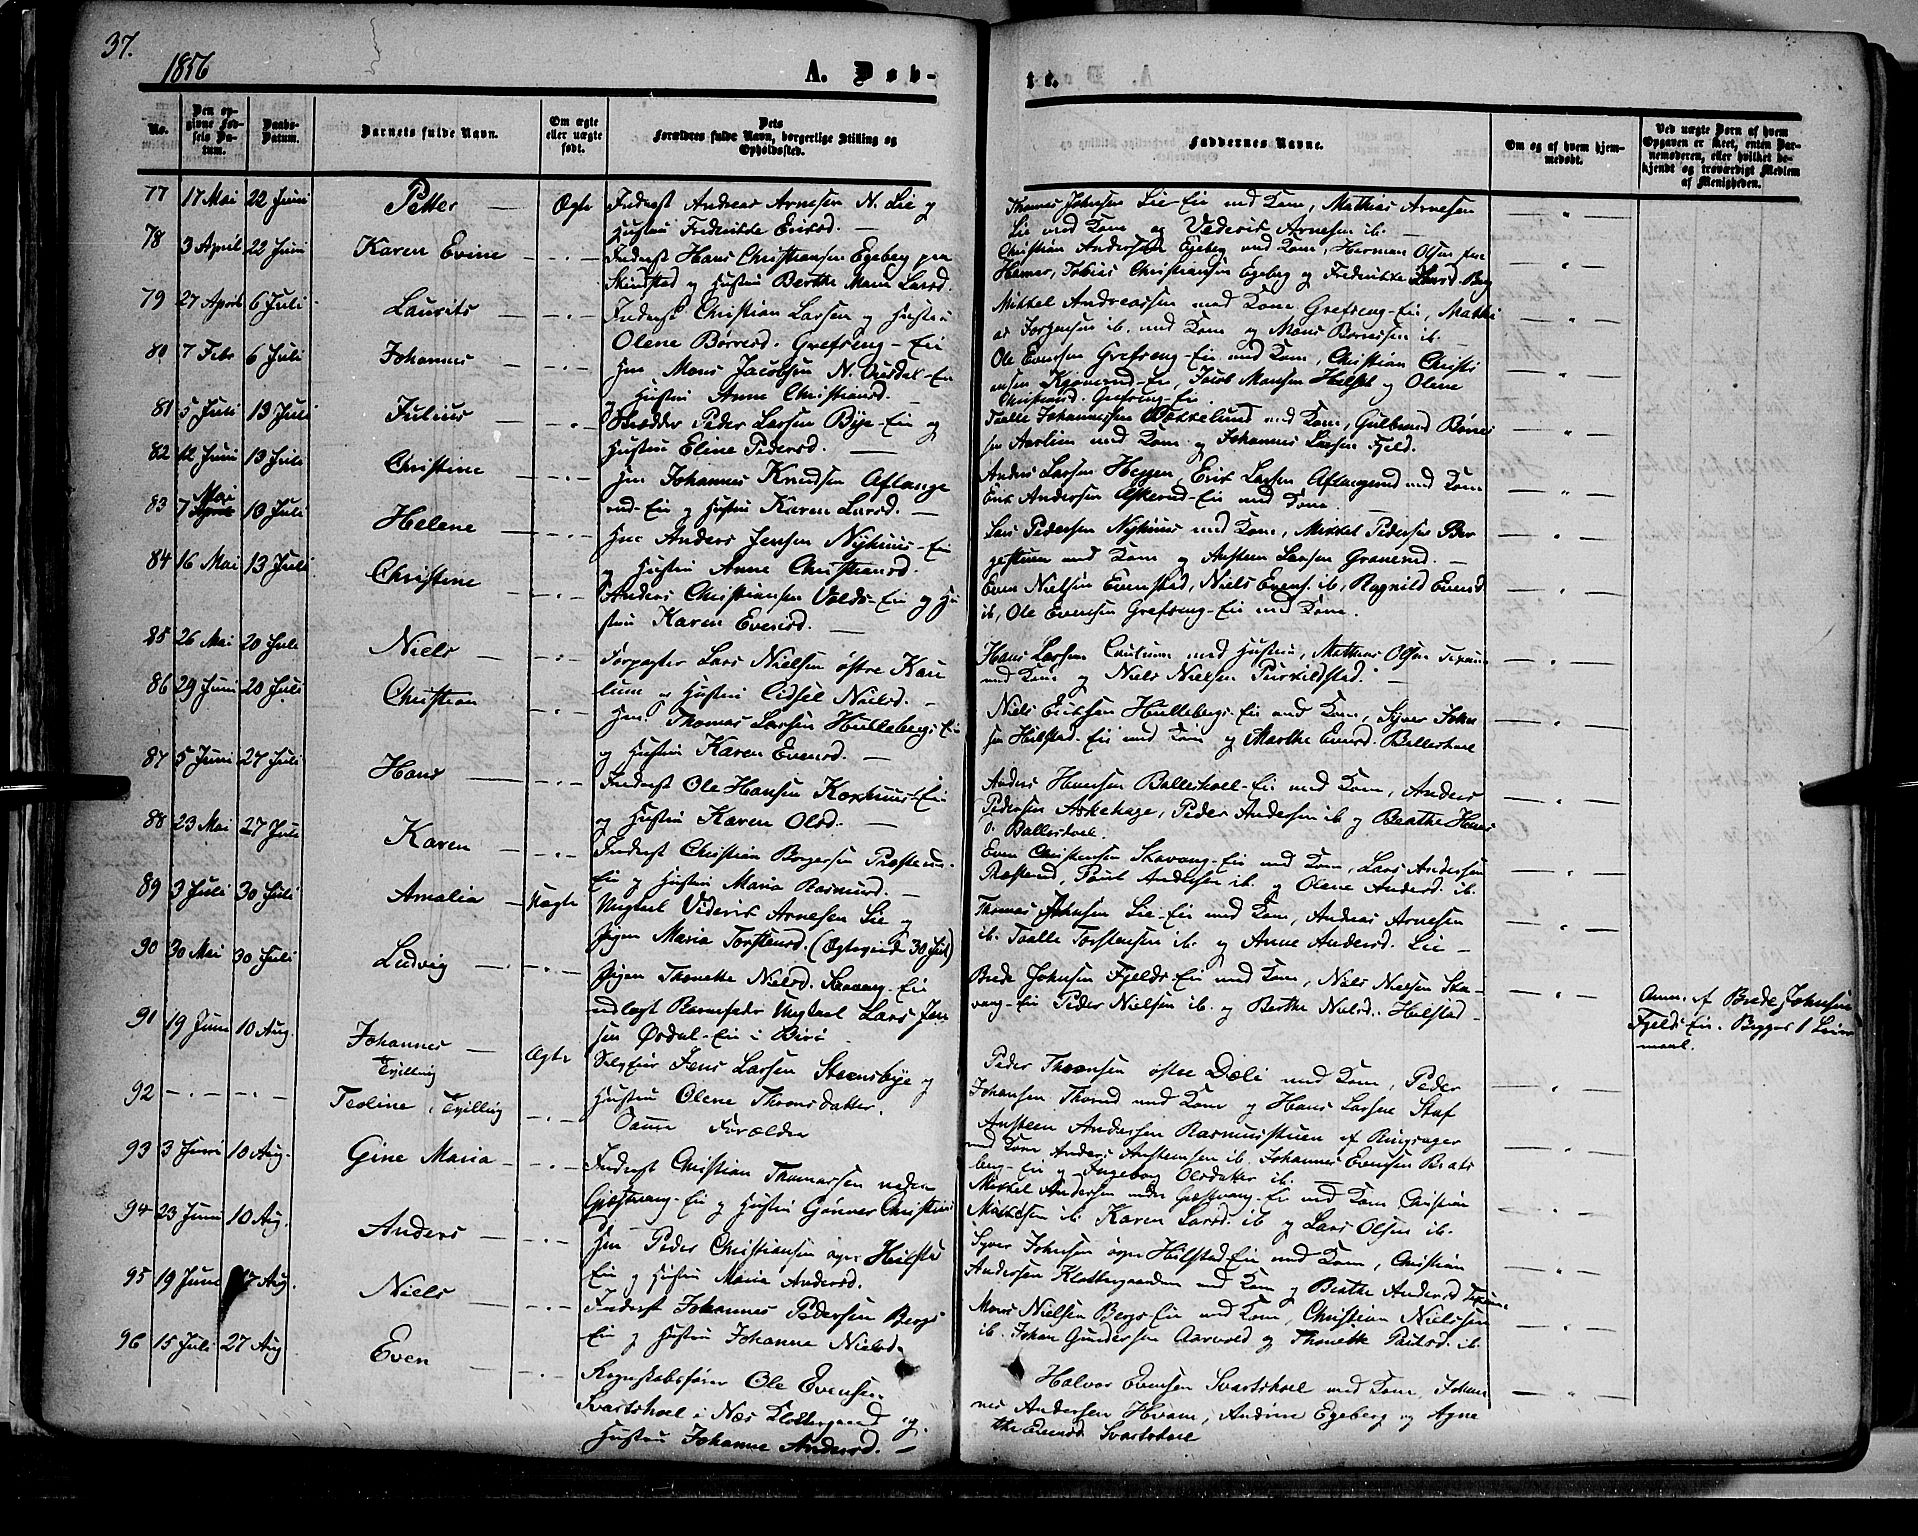 37.
1856
A. Døb-
te.
No.
Den opgivne Fødsels Datum.
Daabs-Datum.
Barnets fulde Navn.
Om ægte eller uægte født.
Dets Forældres fulde Navn, borgerlige Stilling og Opholdssted.
Faddernes Navne.
Om og af hvem hjemmedøbt.
Ved uægte Børn af hvem Opgaven er skeet, enten Barnemoderen, eller hvilket bekjendt og troværdigt Medlem af Menigheden.
77 17 Mai 22 Juni Petter — Ægte Inderst Andreas Arnesen N. Lie og
Hustru Fredrikke Ericsd. —
Thomas Johnsen Lie-Eie med Kone, Mathias Arnesen
Lie med Kone og Arnesen ib. —
78 3 April 22 Juni Karen Evine — " — Inderst Hans Christiansen Egeberg paa
Skindstad og Hustru Berthe Marie Larsd.
Christian Andersen Egeberg med Kone, Herman Olsen
Hamer, Tobias Christiansen Egeberg og Fredrikke Larsd. Berg
79 27 April 6 Juli Laurits — " — Inderst Christian Larsen og Hustru
Olene Børresd. Grefseng-Eie
Mikkel Andreassen med Kone Grefseng-Eie, Mathi
as Jørgensen ib. med Kone og Mons Børresen ib. —
80 7 Febr 6 Juli Johannes — " — Hm Mons Jacobsen N. -Eie
og Hustru Anne Christiansd. —
Ole Evensen Grefseng-Eie med Kone, Christian Christi
ansen -Eie, Jacob Monsen og Olene
Christiansd. Grefseng-Eie
81 5 Juli 13 Juli Julius — " — Skrædder Peder Larsen Bye-Eie og
Hustru Eline Pedersd. —
Taalle Johannesen Bakkelund med Kone, Gulbrand Børre
sen med Kone og Johannes Larsen Fjeld.
82 12 Juni 13 Juli Christine — " — Hm Johannes Knudsen Aflange
rud-Eie og Hustru Karen Larsd. —
Anders Larsen Heggen, Erik Larsen Aflangerud med Kone
Erik Andersen -Eie med Kone
83 7 Mai 13 Juli Helene — " — Hm Anders Jensen Nyhuus-Eie
og Hustru Anne Christiansd. —
Lars Pedersen Nyhuus med Kone, Mikkel Pedersen Ber
gestuen med Kone og Ansteen Larsen Granerud. —
84 16 Mai 13 Juli Christine — " — Anders Christiansen Volds-Eie og Hu
stru Karen Evensd. —
Even Nielsen Evenstad, Niels Evens. ib, Ragnild Evensd
ib, Ole Evensen Grefseng-Eie med Kone.
85 26 Mai 20 Juli Niels — " — Forpagter Lars Nielsen østre Kau
lum og Hustru Sidsel Nielsd. —
Hans Larsen med Hustru, Mathias Olsen
med Kone og Niels Nielsen
86 29 Juni 20 Juli Christian — " — Hm. Thomas Larsen Hulleberg-Eie
og Hustru Karen Evensd. —
Niels Ericksen Hulleberg-Eie med Kone, Syver John
sen Hilstad-Eie med Kone og Marthe Evensd. Ballershoel
87 5 Juni 27 Juli Hans — " — Inderst Ole Hansen Korshuus-Eie
og Hustru Karen Olsd. —
Anders Hansen Ballershoel-Eie med Kone, Anders
Pedersen Askehage, Peder Andersen ib og Beathe Hans
d. Ballershoel.
88 23 Mai 27 Juli Karen — " — Inderst Christian Borgersen Præsterud-
Eie og Hustru Maria Rasmusd. —
Even Christensen Stavang-Eie med Kone, Lars Andersen
Præsterud, Paul Andersen ib. og Olene Andersd. ib.
89 3 Juli 30 Juli Amalia — Uægte Ungkarl Arnesen Lie og
Pigen Maria Torstensd. (Ægteviede 30 Juli)
Thomas Johnsen Lie-Eie med Kone, Andreas Arnesen
ib. Taalle Torstensen ib. og Anne Andersd. Lie —
90 30 Mai 30 Juli Ludvig — " — Pigen Thonette Nielsd. Stavang-Eie
udlagt Barnefader Ungkarl Lars Jen
sen Ørdal-Eie i Birie
Brede Johnsen Fjelds-Eie med Kone, Niels Nielsen Sta
vang-Eie Peder Nielsen ib. og Berthe Nielsd. Hilstad —
Anm. af Brede Johnsen
Fjelds Eie. Begges 1 Leier
maal.
91 19 Juni 10 Aug. Johannes — Ægte
Tvilling
Selveier Jens Larsen Steensbye og
Hustru Olene Thronsdatter.
Peder Thronsen østre Dæli med Kone, Peder
Johansen Thorud med Kone og Hans Larsen Staf
92 — " — " — Teoline, Tvilling — " — Samme Forældre
93 3 Juni 10 Aug. Gine Maria — " — Inderst Christian Thomassen nedre
Gjæstvang-Eie og Hustru Gønner Christian
Ansteen Andersen Rasmusstuen af Ringsager
med Kone Anders Anstensen ib. Johannes Evensen Brats
berg-Eie og Ingeborg Olsdatter ib. —
94 23 Juni 10 Aug. Anders — " — Hm Peder Christiansen øvre Hilstad
Eie og Hustru Maria Andersd.
Mikkel Andersen nedre Gjæstvang-Eie med Kone Christian
Mathisen ib. Karen Larsd. ib og Lars Olsen ib.
95 19 Juni 17 Aug. Niels — " — Inderst Johannes Pedersen Bergs
Eie og Hustru Johanne Nielsd.
Syver Johnsen øvre Hilstad-Eie med Kone, Christian
Andersen Klostergaarden med Kone og Beathe Andersd
Mons Nielsen Bergs-Eie med Kone, Christian Nielssen
ib. Johan Gundersen Aarvold og Thonette Paulsd. ib.
96 15 Juli 27 Aug Even — " — Regnskabsfører Ole Evensen
Svartshoel i Næs Klostergaard og
Hustru Johanne Andersd. —
Halvor Evensen Svartshoel med Kone, Johan
nes Andersen Hvam, Andrine Egeberg og Agne
the Evensd Svartshoel